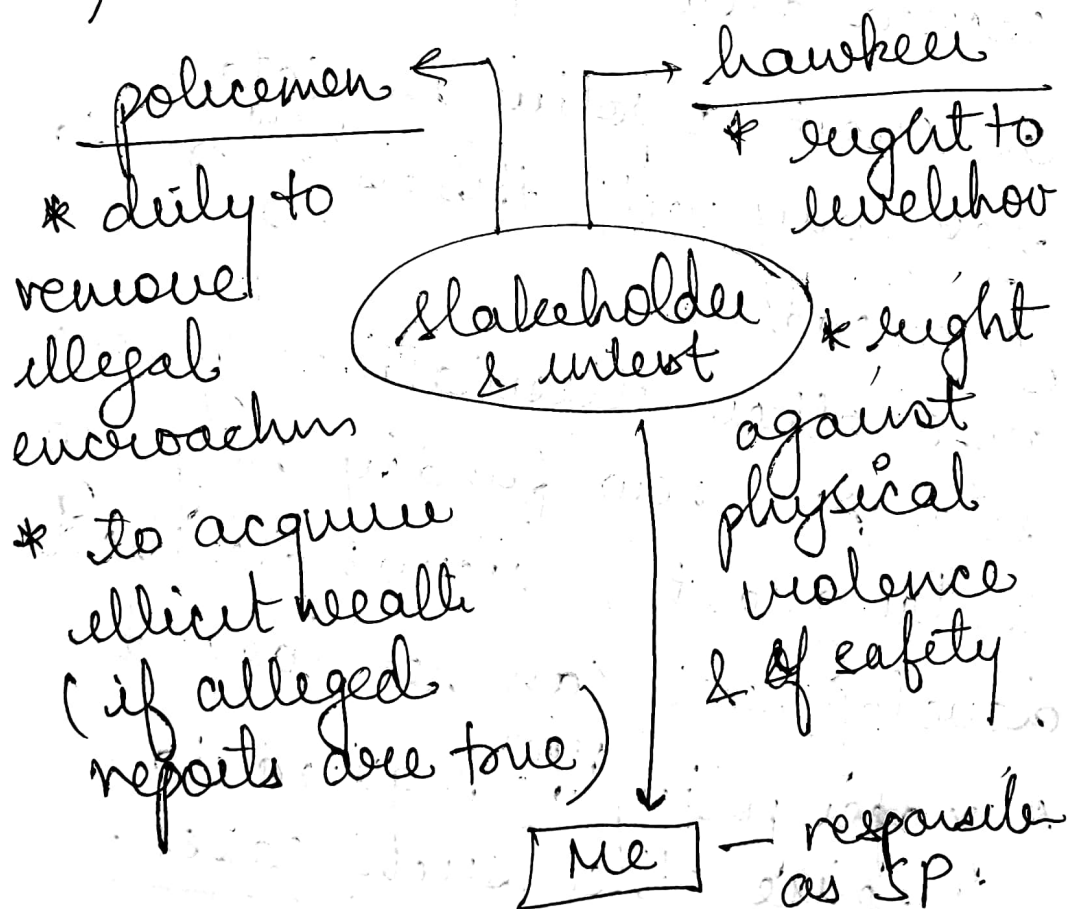 policemen
* duty to
remove
illegal
encroachms
* to acquire
illicit wealth
(if alleged
reports are true)
stakeholder
& interst
hawker
* right to
livelihoo
* right
against
physical
violence
& of safety
Me — responsible
as SP.